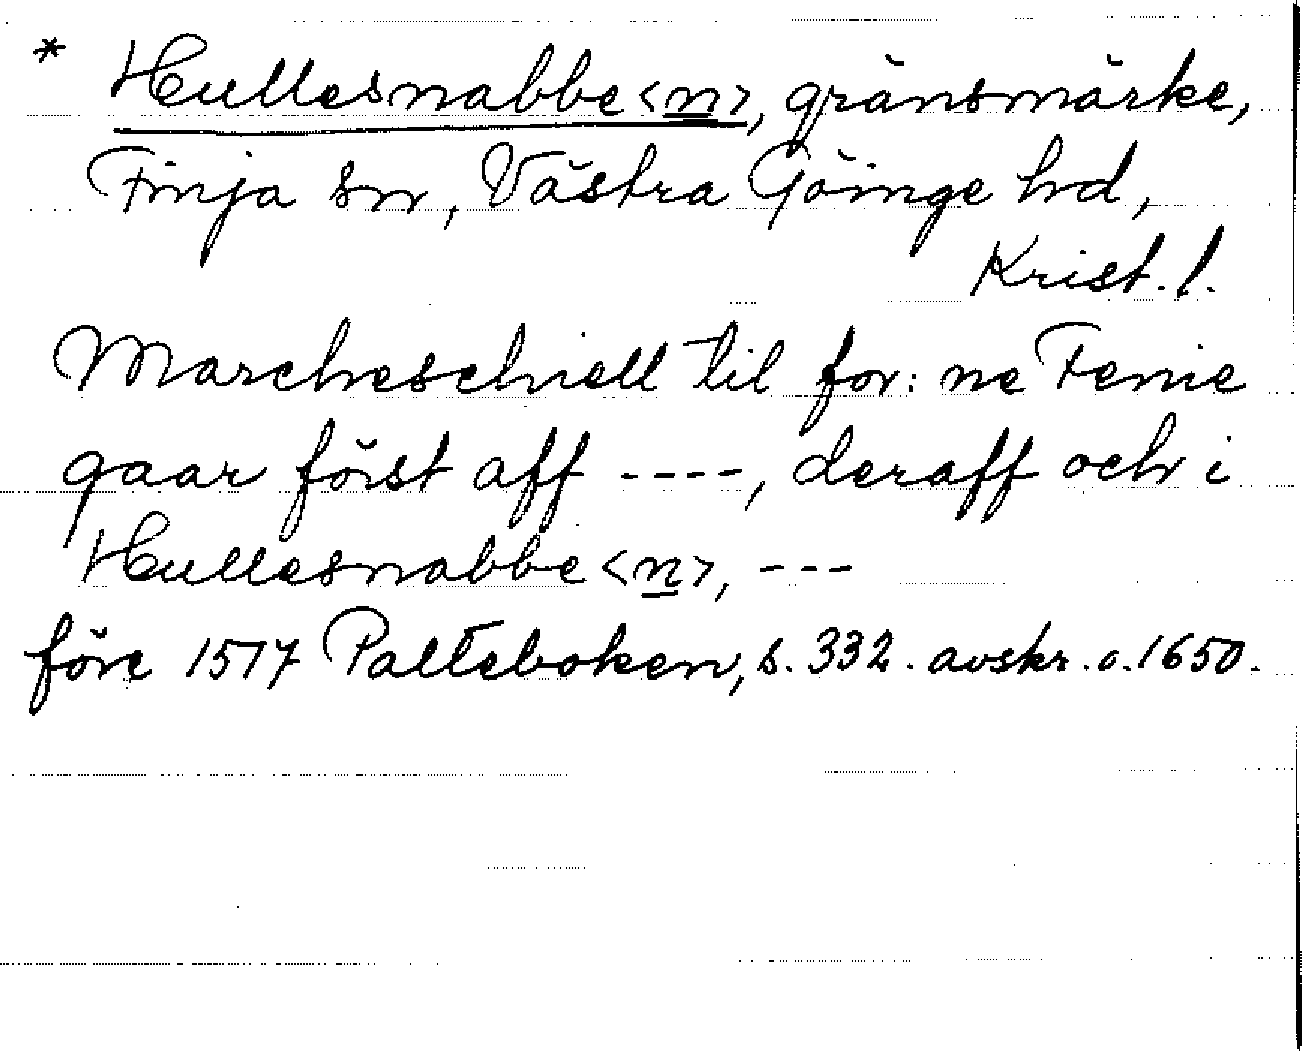 * Hullesnabbe<n>, gränsmärke,
Finja sn, Västra Göinge hd,
Krist. l.
Marcheschiell til for: ne Fenie
gaar först aff ----, deraff och i
Hullesnabbe<n>, ---
före 1517 Palteboken, s. 332. avskr. o. 1650.